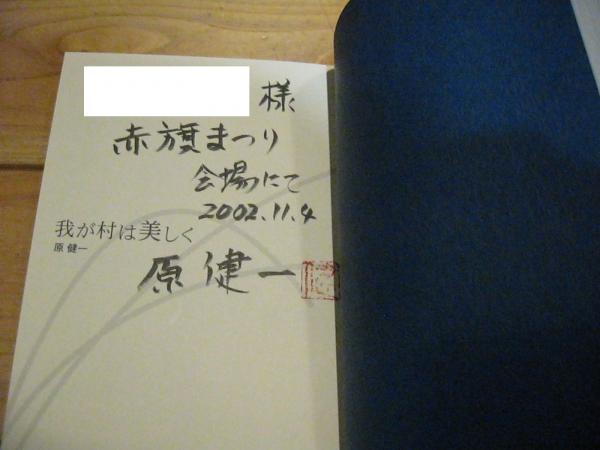 様
赤旗まつり
会場にて
2002.11.4
我が村は美しく
原 健一
原 健一